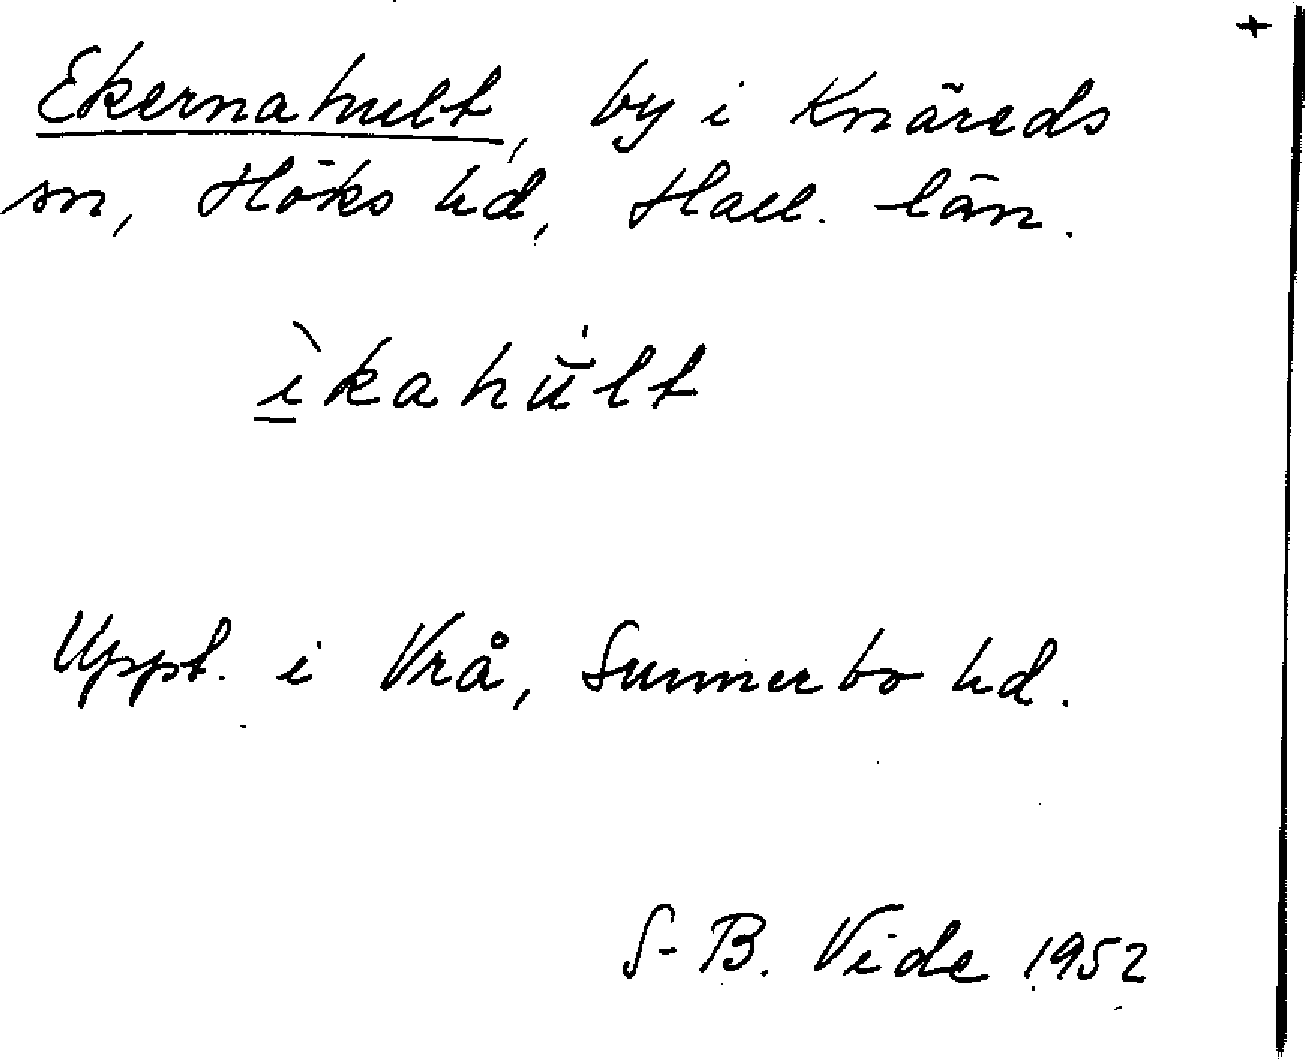 +
Ekernahult, by i Knäreds
sn, Höks hd, Hall. län.
ìkahŭ́lt
Uppt. i Vrå, Sunnerbo hd.
S-B. Vide 1952